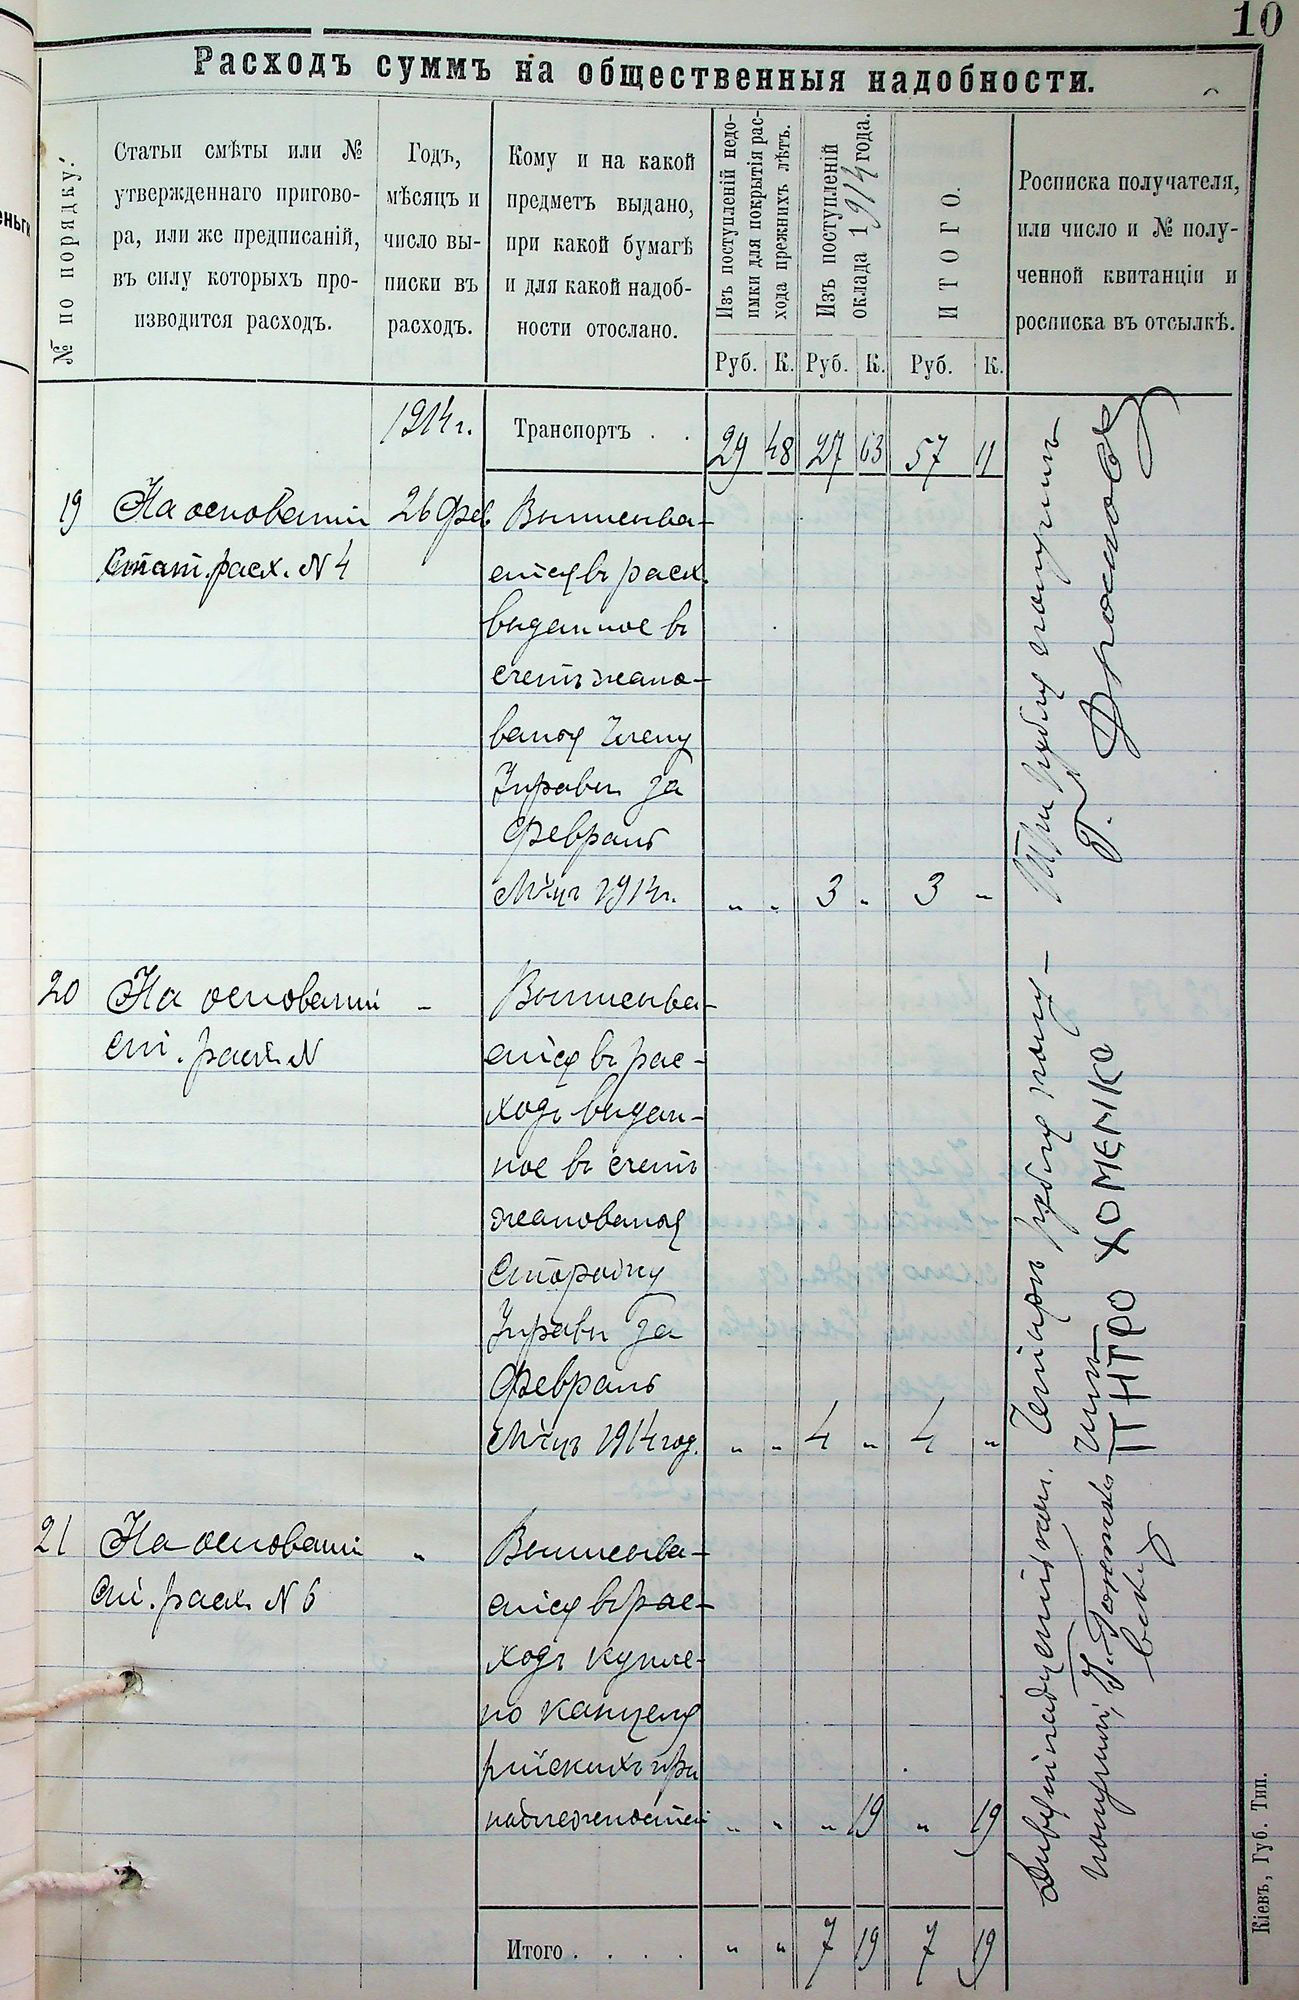 10
Расходъ суммъ на общественныя надобности.
№ по порядку:
Статьи смѣты или №
утвержденнаго пригово-
ра, или же предписаній,
въ силу которыхъ про-
изводится расходъ.
Годъ,
мѣсяцъ и
число вы-
писки въ
расходъ.
Кому и на какой
предметъ выдано,
при какой бумагѣ
и для какой надоб-
ности отослано.
Изъ поступленій недо-
имки для покрытія рас-
хода прежнихъ лѣтъ.
Изъ поступленій
оклада 1914 года.
ИТОГО.
Росписка получателя,
или число и № полу-
ченной квитанціи и
росписка въ отсылкѣ.
Руб. К. Руб. К. Руб. К.
1914 г. Транспортъ . . 29 48 27 63 57 11
19 На основаніи 26 Фев. Выписыва-
Стат. расх. N 4 ется въ расх.
выданное въ
счетъ жало-
ванья Члену
Управы за
Февраль
М-цъ 1914 г. „ „ 3 „ 3 „
Три рубля получилъ
20 На основаніи - Выписыва-
ст. расх. N ется въ рас-
ходъ выдан-
ное въ счетъ
жалованья
Сторожу
Управы за
Февраль
М-цъ 1914 год. „ „ 4 „ 4 „
Четыри рубля полу-
чилъ
ПНТРО ХОМЕНКО
21 На основаніи „ Выписыва-
Ст. расх. N 6 ется въ рас-
ходъ купле-
но канцеля
рійскихъ при
надлежностей „ „ „ 19 „ 19
получилъ
Итого . . . . „ „ 7 19 7 19
Кіевъ, Губ. Тип.